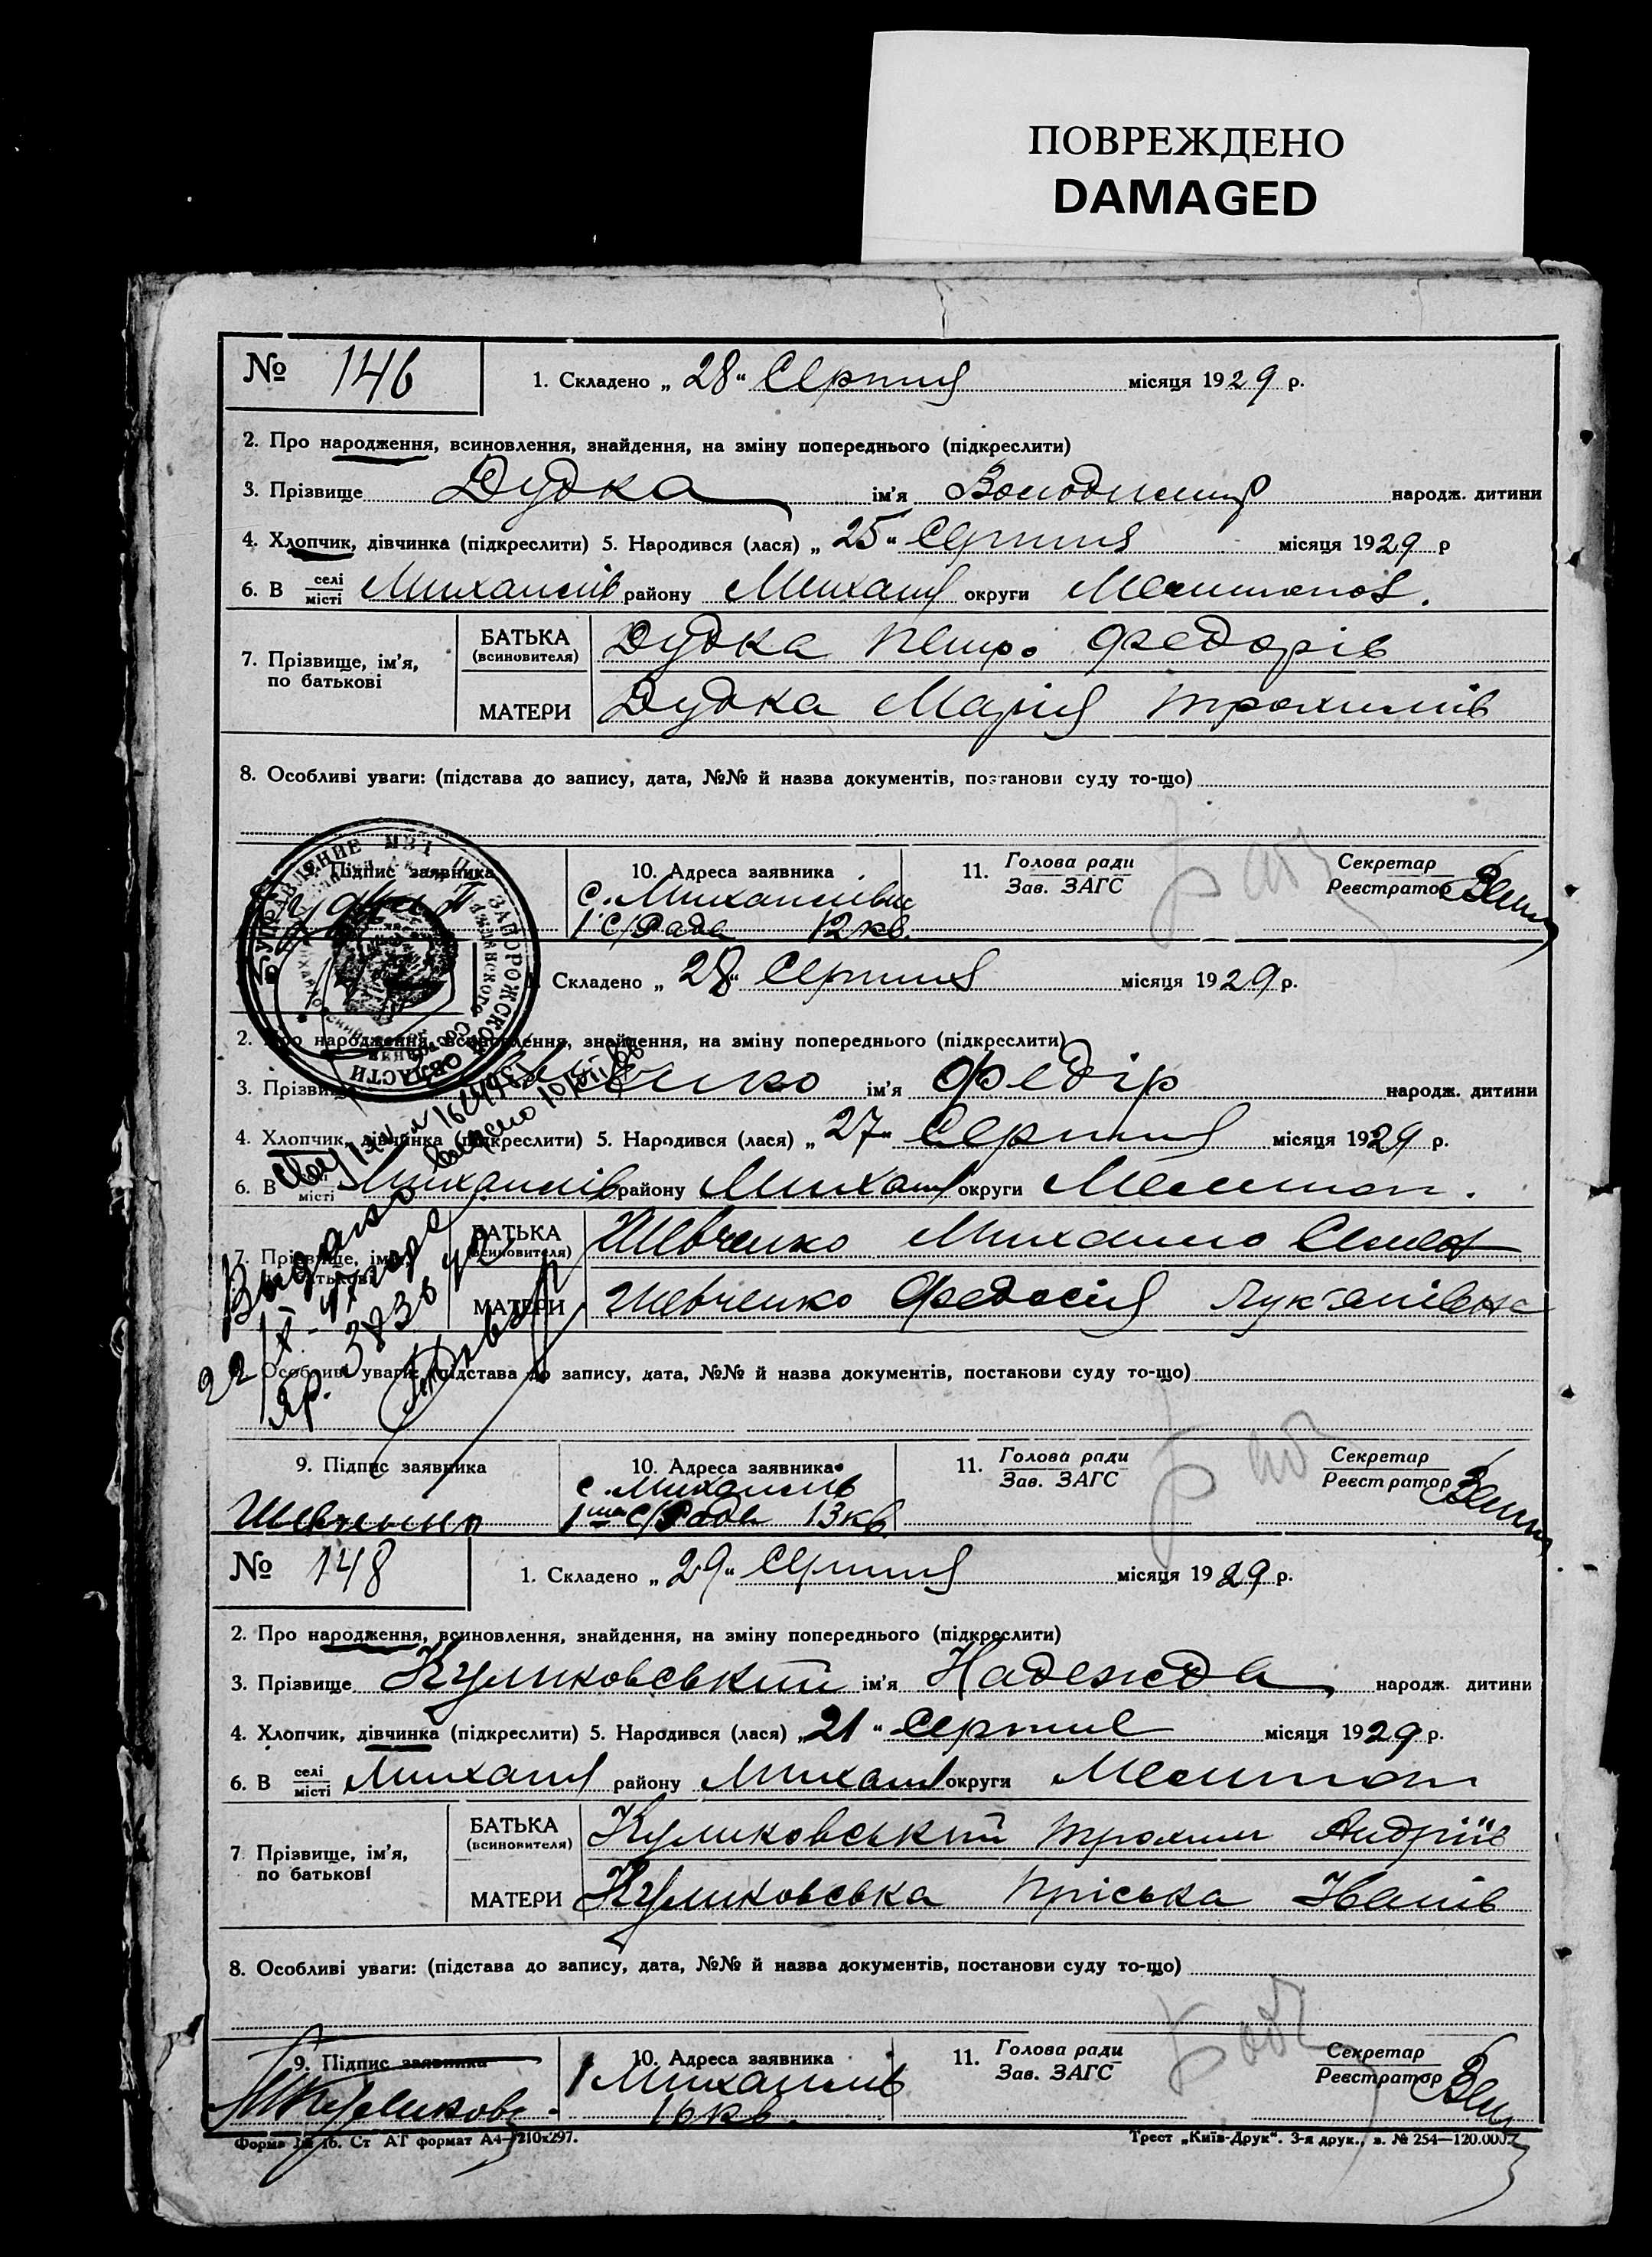 ПОВРЕЖДЕНО
DAMAGED
№ 146 1. Складено „ 28 “ Серпня місяця 1929 р.
2. Про народження, всиновлення, знайдення, на зміну попереднього (підкреслити)
3. Прізвище Дудка ім'я Володимир народж. дитини
4. Хлопчик, дівчинка (підкреслити) 5. Народився (лася) „ 25 “ Серпня місяця 1929 р
6. В селі місті Михайлів району Михайл округи Мелитопол.
7. Прізвище, ім'я, по батькові
БАТЬКА (всиновителя) Дудка Петро Федорів
МАТЕРИ Дудка Марія Трохимів
8. Особливі уваги: (підстава до запису, дата, №№ й назва документів, постанови суду то-що)
Підпис заявника 10. Адреса заявника 11. Голова ради Секретар
Зав. ЗАГС Реєстратор
с. Михайлівк
1 С/Рада 12 кв.
УПРАВЛЕНИЕ МВД ЗАПОРОЖСКОЙ ОБЛАСТИ
Складено „ 28 “ Серпня місяця 1929 р.
2. Про народження, всиновлення, знайдення, на зміну попереднього (підкреслити)
3. Прізвище ім'я Федір народж. дитини
4. Хлопчик, дівчинка (підкреслити) 5. Народився (лася) „ 27 “ Серпня місяця 1929 р.
6. В місті Михайлів району Михайл округи Мелитоп.
7. Прізвище, ім'я, по батькові
БАТЬКА (всиновителя) Шевченко Михайло Семен
МАТЕРИ Шевченко Федосія Лук'янівна
Особливі уваги: (підстава до запису, дата, №№ й назва документів, постанови суду то-що)
9. Підпис заявника 10. Адреса заявника 11. Голова ради Секретар
Зав. ЗАГС Реєстратор
с. Михайлів
Шевченко 1ша С/Рада 13 кв
№ 148 1. Складено „ 29 “ Серпня місяця 1929 р.
2. Про народження, всиновлення, знайдення, на зміну попереднього (підкреслити)
3. Прізвище Куликовський ім'я Надежда народж. дитини
4. Хлопчик, дівчинка (підкреслити) 5. Народився (лася) „ 21 “ Серпня місяця 1929 р.
6. В селі місті Михайл району Михайл округи Мелитоп
7 Прізвище, ім'я, по батькові
БАТЬКА (всиновителя) Куликовський Трохим Андріїв
МАТЕРИ Куликовська Пріська Іванів
8. Особливі уваги: (підстава до запису, дата, №№ й назва документів, постанови суду то-що)
9. Підпис заявника 10. Адреса заявника 11. Голова ради Секретар
Зав. ЗАГС Реєстратор
1 Михайлів
16 кв.
Форма № 16. Ст АТ формат А4—210x297. Трест „Київ-Друк“. 3-я друк., з. № 254—120.000.